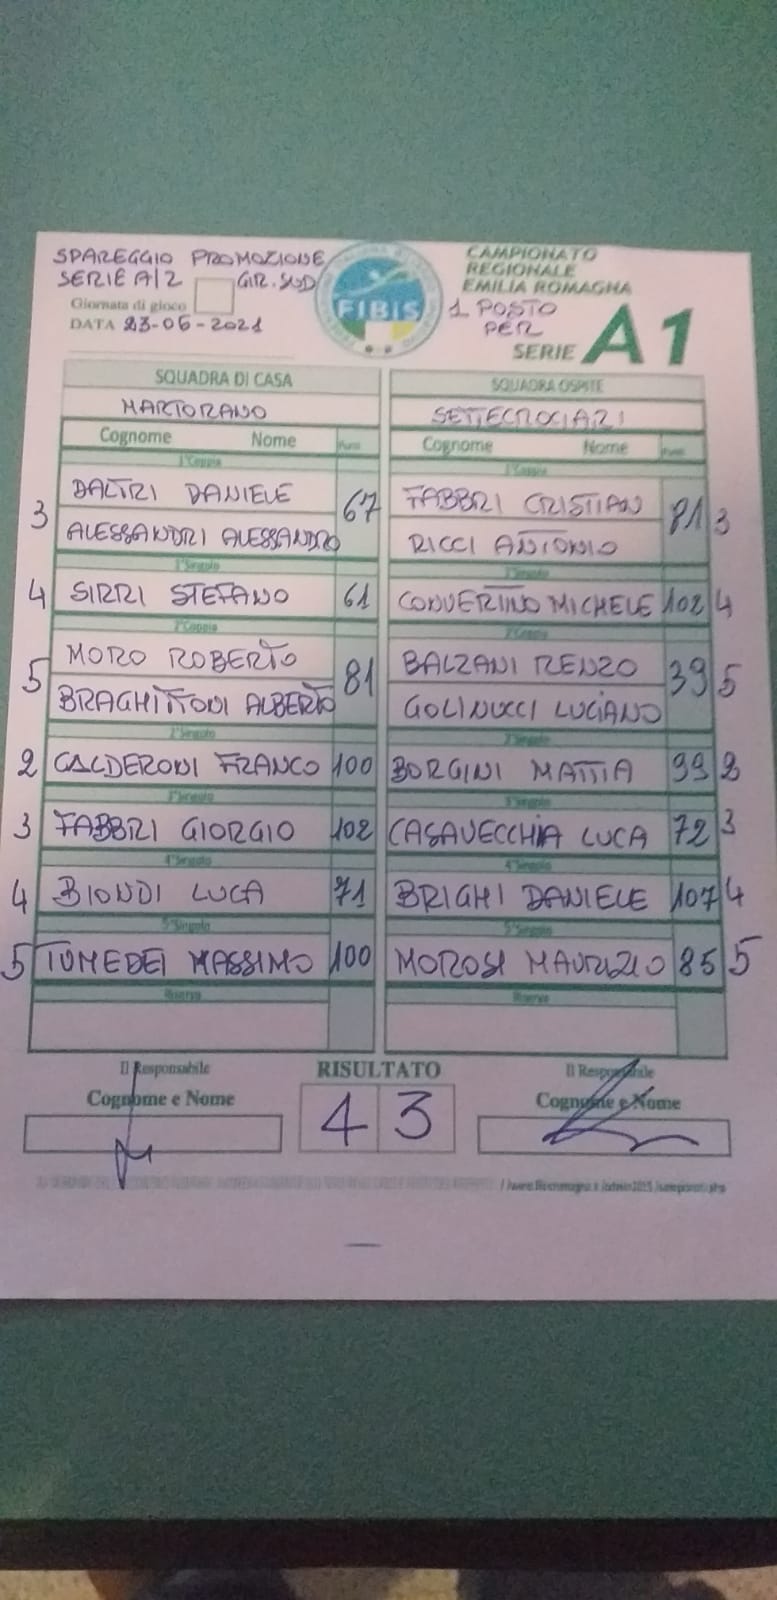 SPAREGGIO PROMOZIONE
SERIE A/2 GIR. SUD
Giornata di gioco
DATA 23-06-2021
FIBIS
CAMPIONATO
REGIONALE
EMILIA ROMAGNA
1 POSTO
PER
SERIE A1
SQUADRA DI CASA SQUADRA OSPITE
MARTORANO SETTECROCIARI
Cognome Nome Punti Cognome Nome Punti
1°Coppia 1°Coppia
3 DALTRI DANIELE 67 FABBRI CRISTIAN 81 3
ALESSANDRI ALESSANDRO RICCI ANTONIO
1°Singolo 1°Singolo
4 SIRRI STEFANO 61 CONVERTINO MICHELE 102 4
2°Coppia 2°Coppia
5 MORO ROBERTO 81 BALZANI RENZO 39 5
BRAGHITTONI ALBERTO GOLINUCCI LUCIANO
2°Singolo 2°Singolo
2 CALDERONI FRANCO 100 BORGINI MATTIA 99 2
3°Singolo 3°Singolo
3 FABBRI GIORGIO 102 CASAVECCHIA LUCA 72 3
4°Singolo 4°Singolo
4 BIONDI LUCA 71 BRIGHI DANIELE 107 4
5°Singolo 5°Singolo
5 TUMEDEI MASSIMO 100 MOROSI MAURIZIO 85 5
Riserva Riserva
Il Responsabile RISULTATO Il Responsabile
Cognome e Nome Cognome e Nome
4 3